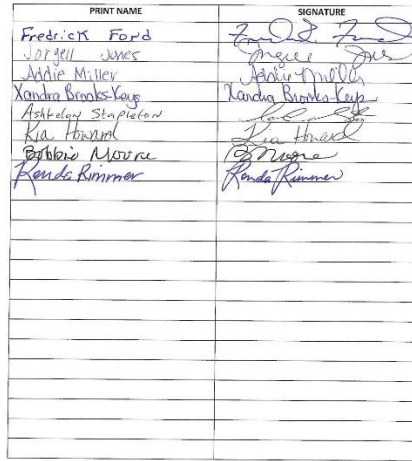 PRINT NAME SIGNATURE
Fredrick Ford
Jorjell Jones
Addie Miller Addie Miller
Xandra Brooks-Keys Xandra Brooks-Keys
Ashkelon Stapleton
Kia Howard Kia Howard
Bobbie Moore B Moore
Kenda Rimmer Kenda Rimmer